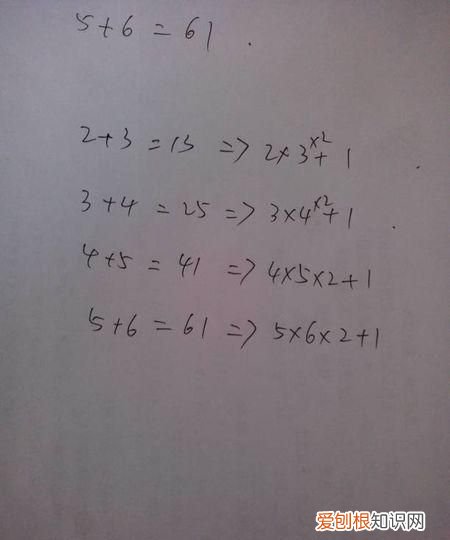 5+6=61.
2+3=13 => 2×3×2+1
3+4=25 => 3×4×2+1.
4+5=41 => 4×5×2+1
5+6=61 => 5×6×2+1
爱刨根知识网